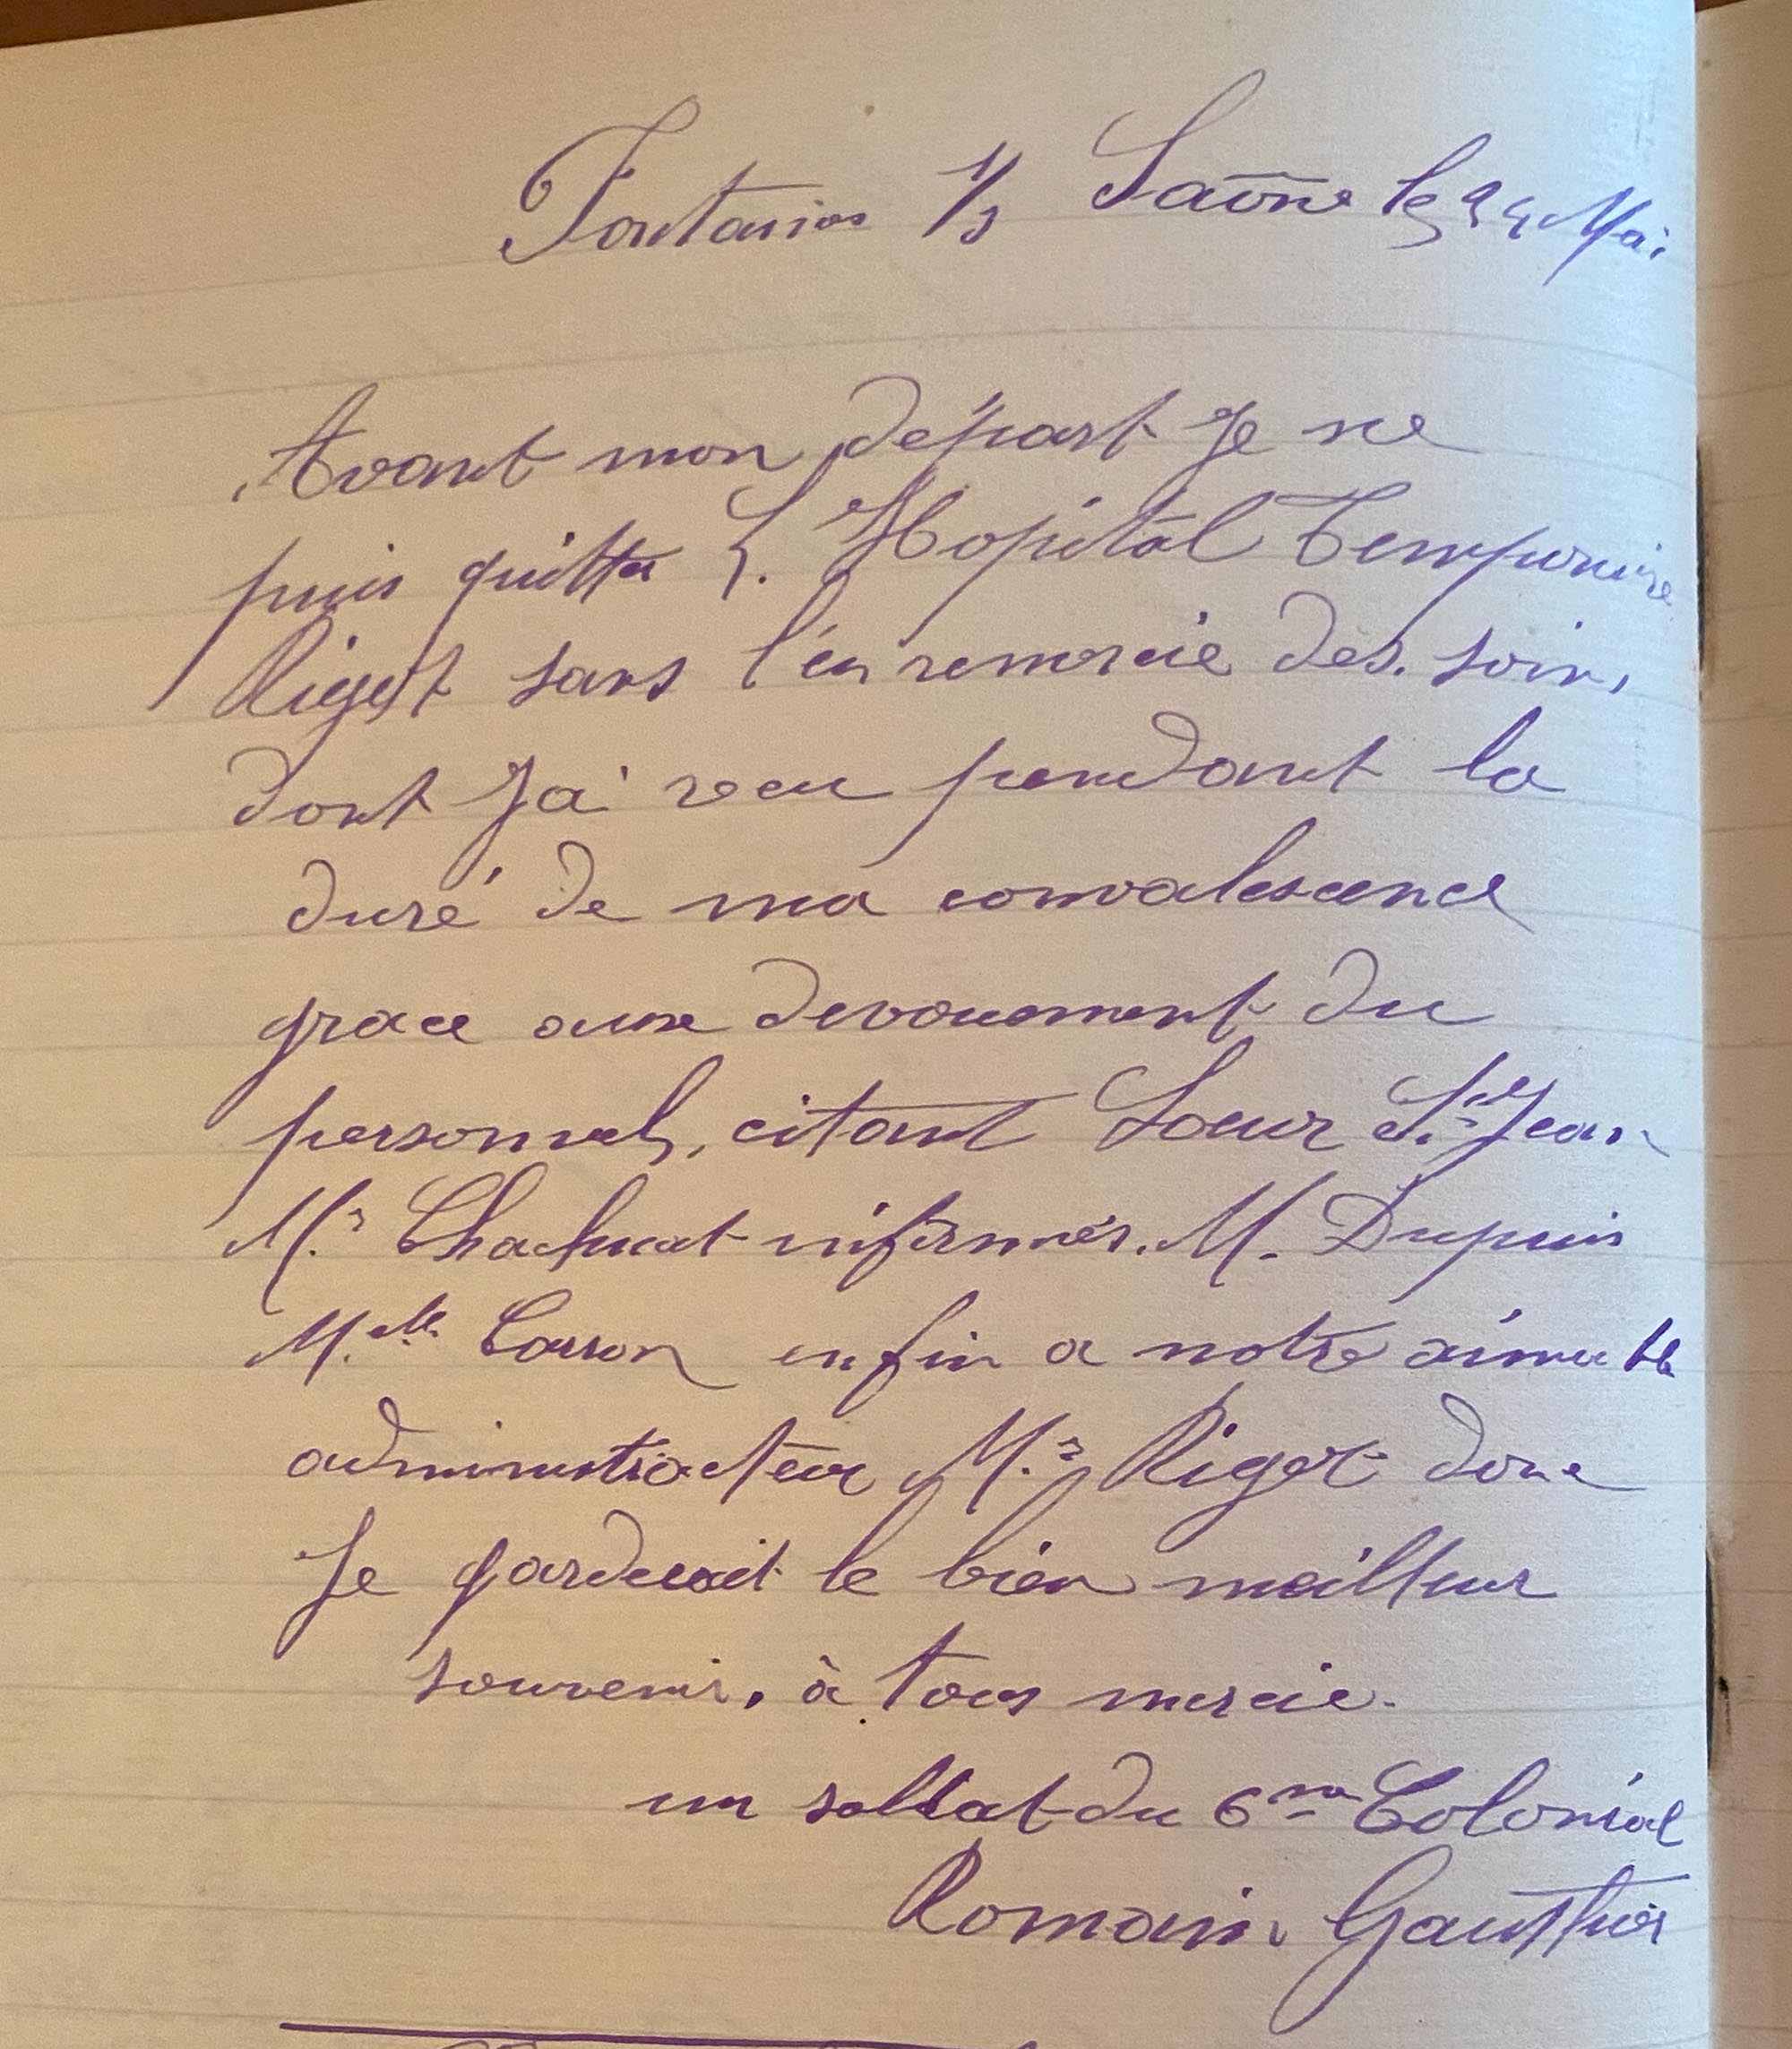 Fontaines s/s Saône le 24 Mai
Avant mon départ Je ne
puis quitter L. Hopital Temporaire
Rigot sans l'en remercie des soins
dont J'ai recu pendant la
duré de ma convalescence
grace aux devouement du
personnel, citant Soeur St Jean
Mr Chachuat infirmier. M. Dupuis
Melle Carron enfin a notre aimable
administracteur Mr Rigot donc
Je garderait le bien meilleur
souvenir. à tous mercie.
un soldat du 6me Colonial
Romain Gauthier